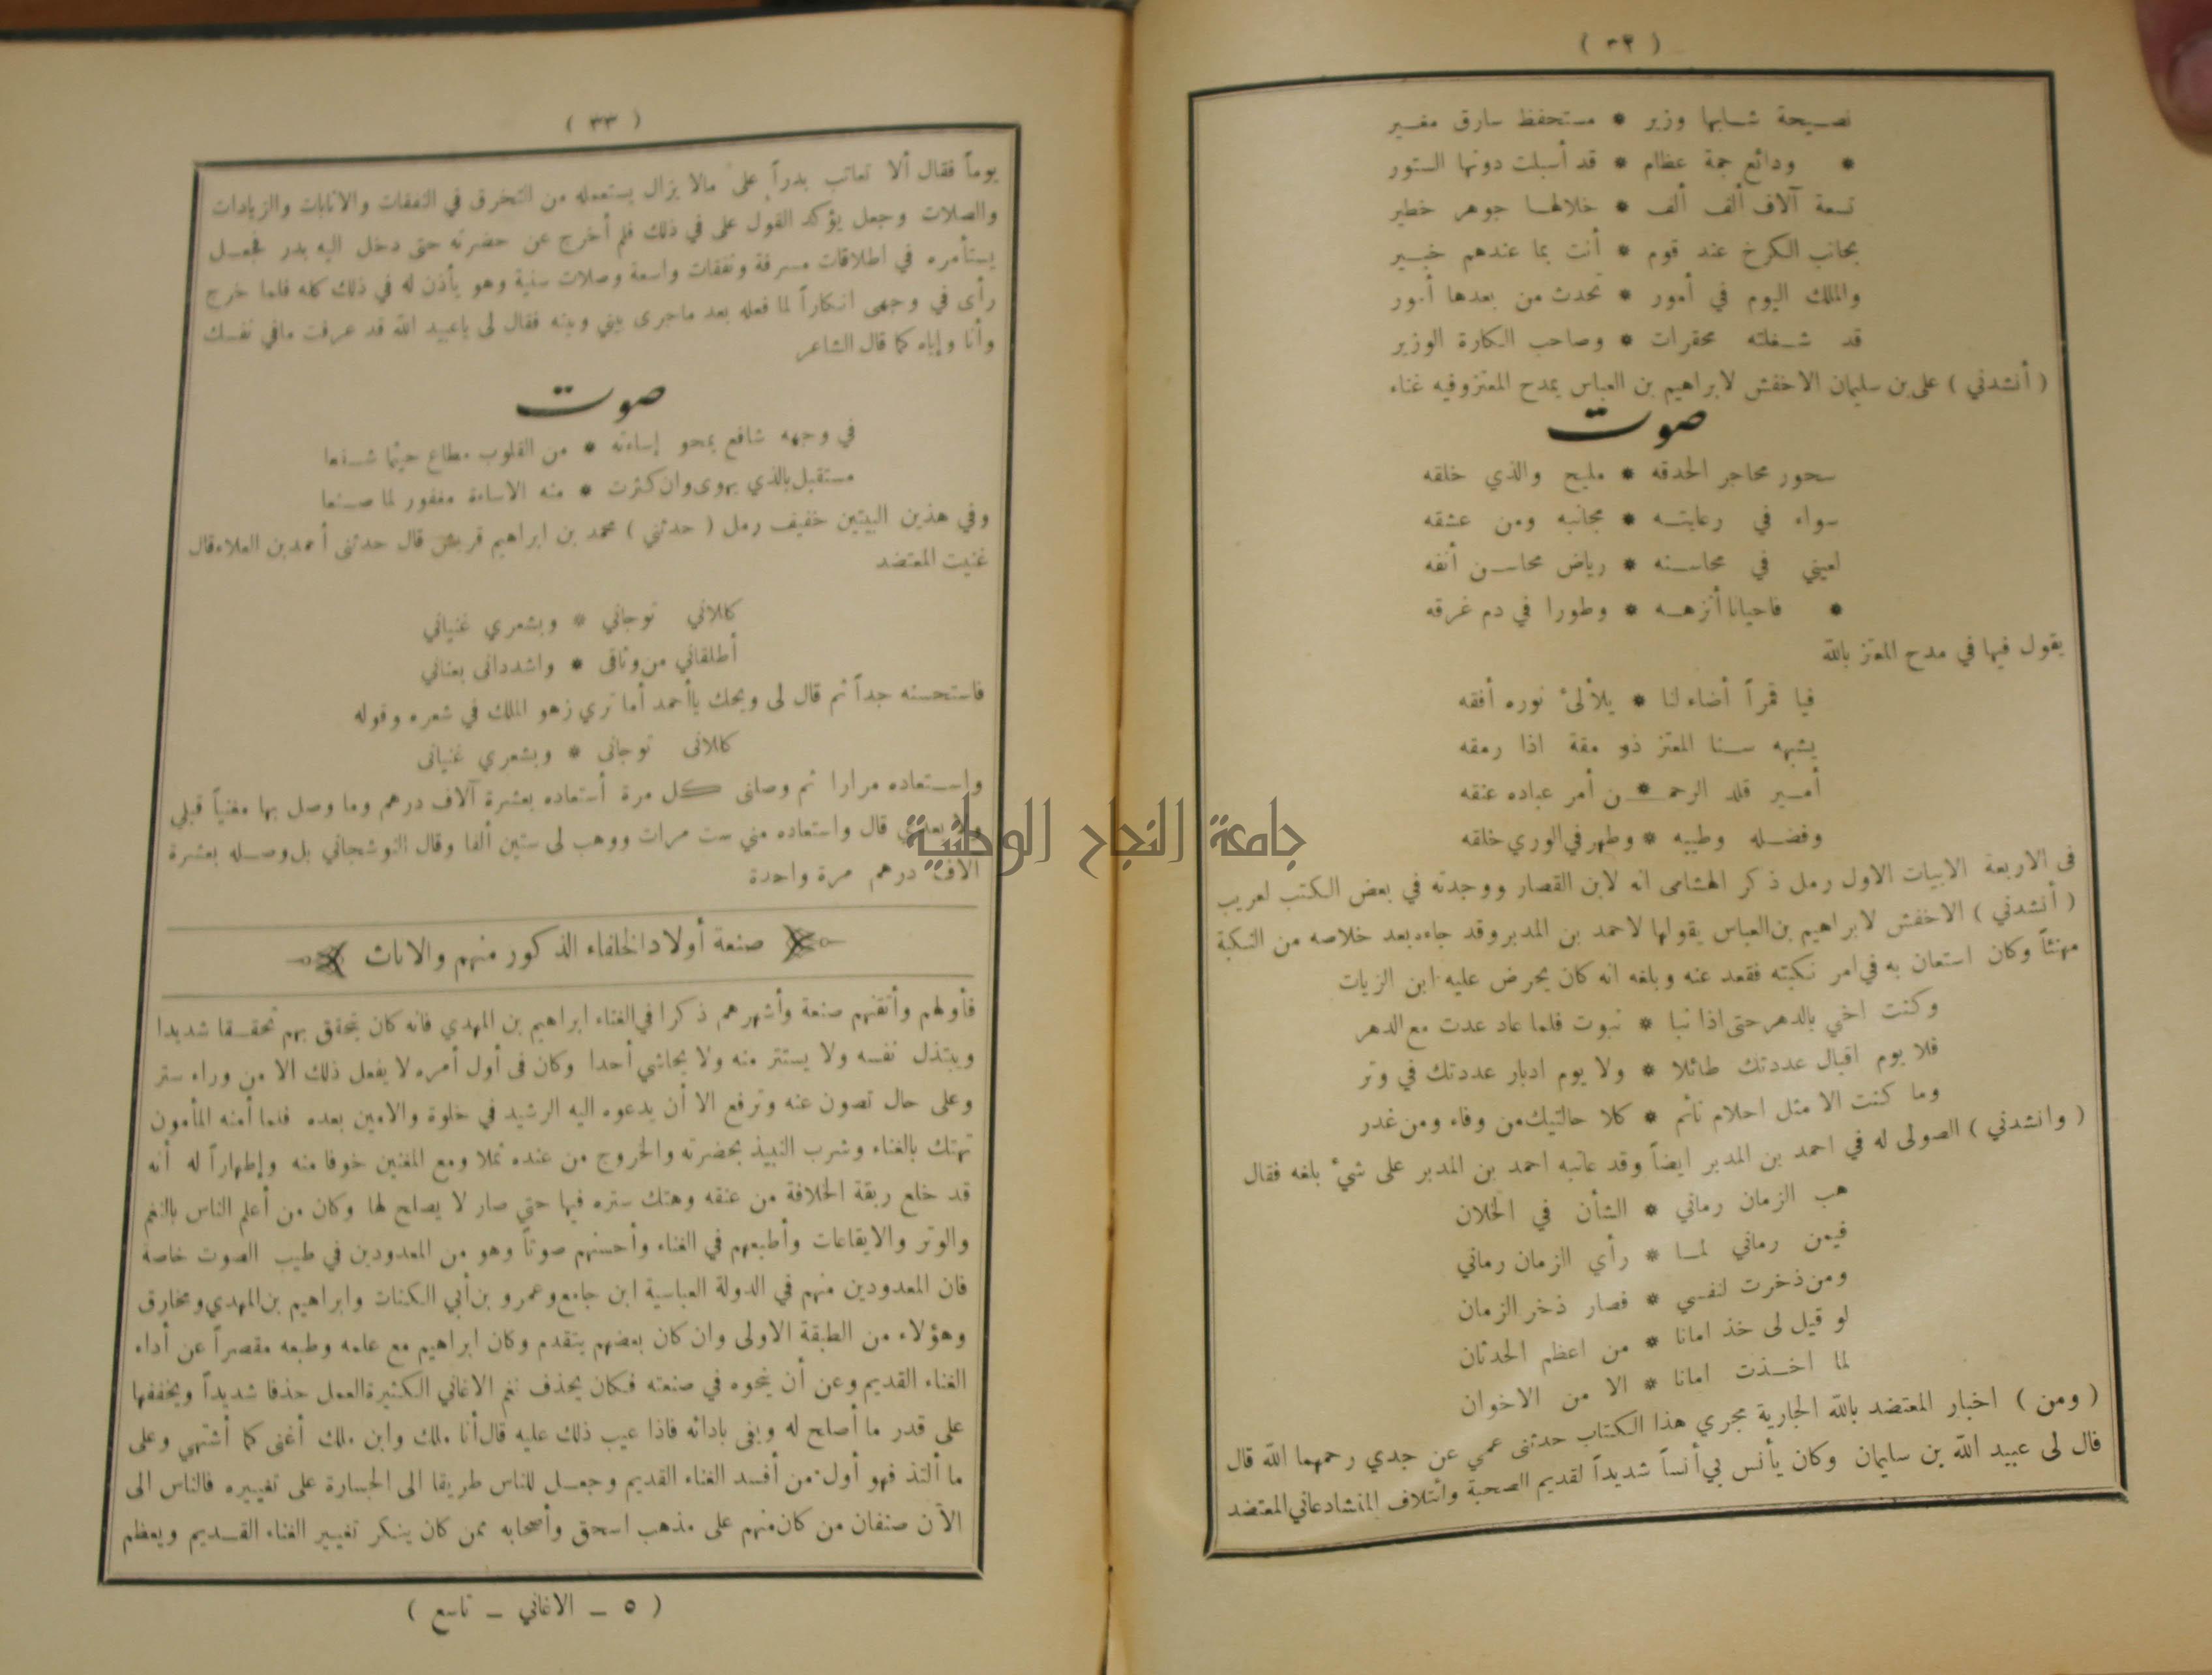 ( ٣٢ )
نصيحة شابها وزير * مستحفظ سارق مغير
* ودائع جمة عظام * قد أسبلت دونها الستور
تسعة آلاف ألف ألف * خلالها جوهر خطير
بجانب الكرخ عند قوم * أنت بما عندهم خبير
والملك اليوم في أمور * تحدث من بعدها أمور
قد شغلته محقرات * وصاحب الكارة الوزير
( أنشدني ) على بن سليمان الاخفش لابراهيم بن العباس يمدح المعتز وفيه غناء
صوت
سحور محاجر الحدقه * مليح والذي خلقه
سواء في رعايته * مجانبه ومن عشقه
لعيني في محاسنه * رياض محاسن أنفه
* فاحيانا أنزهه * وطورا في دم غرقه
يقول فيها في مدح المعتز بالله
فيا قمراً أضاء لنا * يلألئ نوره أفقه
يشبهه سنا المعتز ذو مقة اذا رمقه
أمير قلد الرحمـ * ـن أمر عباده عنقه
وفضله وطيبه * وطهر في الوري خلقه
فى الاربعة الابيات الاول رمل ذكر الهشامى انه لابن القصار ووجدته في بعض الكتب لعريب
( أنشدني ) الاخفش لابراهيم بن العباس يقولها لاحمد بن المدبر وقد جاءه بعد خلاصه من النكبة
مهنئاً وكان استعان به في امر نكبته فقعد عنه وبلغه انه كان يحرض عليه ابن الزيات
وكنت اخي بالدهر حتى اذا نبا * نبوت فلما عاد عدت مع الدهر
فلا يوم اقبال عددتك طائلا * ولا يوم ادبار عددتك في وتر
وما كنت الا مثل احلام نائم * كلا حالتيك من وفاء ومن غدر
( وانشدني ) الصولى له في احمد بن المدبر ايضاً وقد عاتبه احمد بن المدبر على شيء بلغه فقال
هب الزمان رماني * الشأن في الخلان
فيمن رماني لما * رأي الزمان رماني
ومن ذخرت لنفسي * فصار ذخر الزمان
لو قيل لى خذ امانا * من اعظم الحدثان
لما اخذت امانا * الا من الاخوان
( ومن ) اخبار المعتضد بالله الجارية مجري هذا الكتاب حدثنى عمي عن جدي رحمهما الله قال
قال لى عبيد الله بن سليمان وكان يأنس بي أنساً شديداً لقديم الصحبة وائتلاف المنشا دعاني المعتضد
( ٣٣ )
يوماً فقال ألا تعاتب بدراً على مالا يزال يستعمله من التخرق في النفقات والاثابات والزيادات
والصلات وجعل يؤكد القول على في ذلك فلم أخرج عن حضرته حتى دخل اليه بدر فجعل
يستأمره في اطلاقات مسرفة ونفقات واسعة وصلات سنية وهو يأذن له في ذلك كله فلما خرج
رأى في وجهى انكاراً لما فعله بعد ماجرى بيني وبينه فقال لى ياعبيد الله قد عرفت مافي نفسك
وأنا وإياه كما قال الشاعر
صوت
في وجهه شافع يمحو إساءته * من القلوب مطاع حيثما شفعا
مستقبل بالذي يهوى وان كثرت * منه الاساءة مغفور لما صنعا
وفي هذين البيتين خفيف رمل ( حدثني ) محمد بن ابراهيم قريش قال حدثنى أحمد بن العلاء قال
غنيت المعتضد
كللاني توجاني * وبشعري غنياني
أطلقاني من وثاقى * واشددانى بعناني
فاستحسنه جداً ثم قال لى ويحك ياأحمد أما تري زهو الملك في شعره وقوله
كللانى توجانى * وبشعري غنيانى
واستعاده مرارا ثم وصلنى كل مرة أستعاده بعشرة آلاف درهم وما وصل بها مغنياً قبلي
ولا بعدي قال واستعاده مني ست مرات ووهب لى ستين ألفا وقال النوشجاني بل وصله بعشرة
آلاف درهم مرة واحدة
صنعة أولاد الخلفاء الذكور منهم والاناث
فأولهم وأتقنهم صنعة وأشهرهم ذكرا في الغناء ابراهيم بن المهدي فانه كان يتحقق بهم تحققا شديدا
ويبتذل نفسه ولا يستتر منه ولا يحاشي أحدا وكان فى أول أمره لا يفعل ذلك الا من وراء ستر
وعلى حال تصون عنه وترفع الا أن يدعوه اليه الرشيد في خلوة والامين بعده فلما أمنه المأمون
تهتك بالغناء وشرب النبيذ بحضرته والخروج من عنده ثملا ومع المغنين خوفا منه وإظهاراً له أنه
قد خلع ربقة الخلافة من عنقه وهتك ستره فيها حتي صار لا يصلح لها وكان من أعلم الناس بالنغم
والوتر والايقاعات وأطبعهم في الغناء وأحسنهم صوتاً وهو من المعدودين في طيب الصوت خاصة
فان المعدودين منهم في الدولة العباسية ابن جامع وعمرو بن أبي الكنات وابراهيم بن المهدي ومخارق
وهؤلاء من الطبقة الاولى وان كان بعضهم يتقدم وكان ابراهيم مع علمه وطبعه مقصراً عن أداء
الغناء القديم وعن أن ينحوه في صنعته فكان يحذف نغم الاغاني الكثيرة العمل حذفا شديداً ويخففها
على قدر ما أصلح له ويفى بادائه فاذا عيب ذلك عليه قال أنا ملك وابن ملك أغنى كما أشتهي وعلى
ما ألتذ فهو أول من أفسد الغناء القديم وجعل للناس طريقا الى الجسارة على تغييره فالناس الى
الآن صنفان من كان منهم على مذهب اسحق وأصحابه ممن كان ينكر تغيير الغناء القديم ويعظم
( ٥ – الاغاني – تاسع )
جامعة النجاح الوطنية